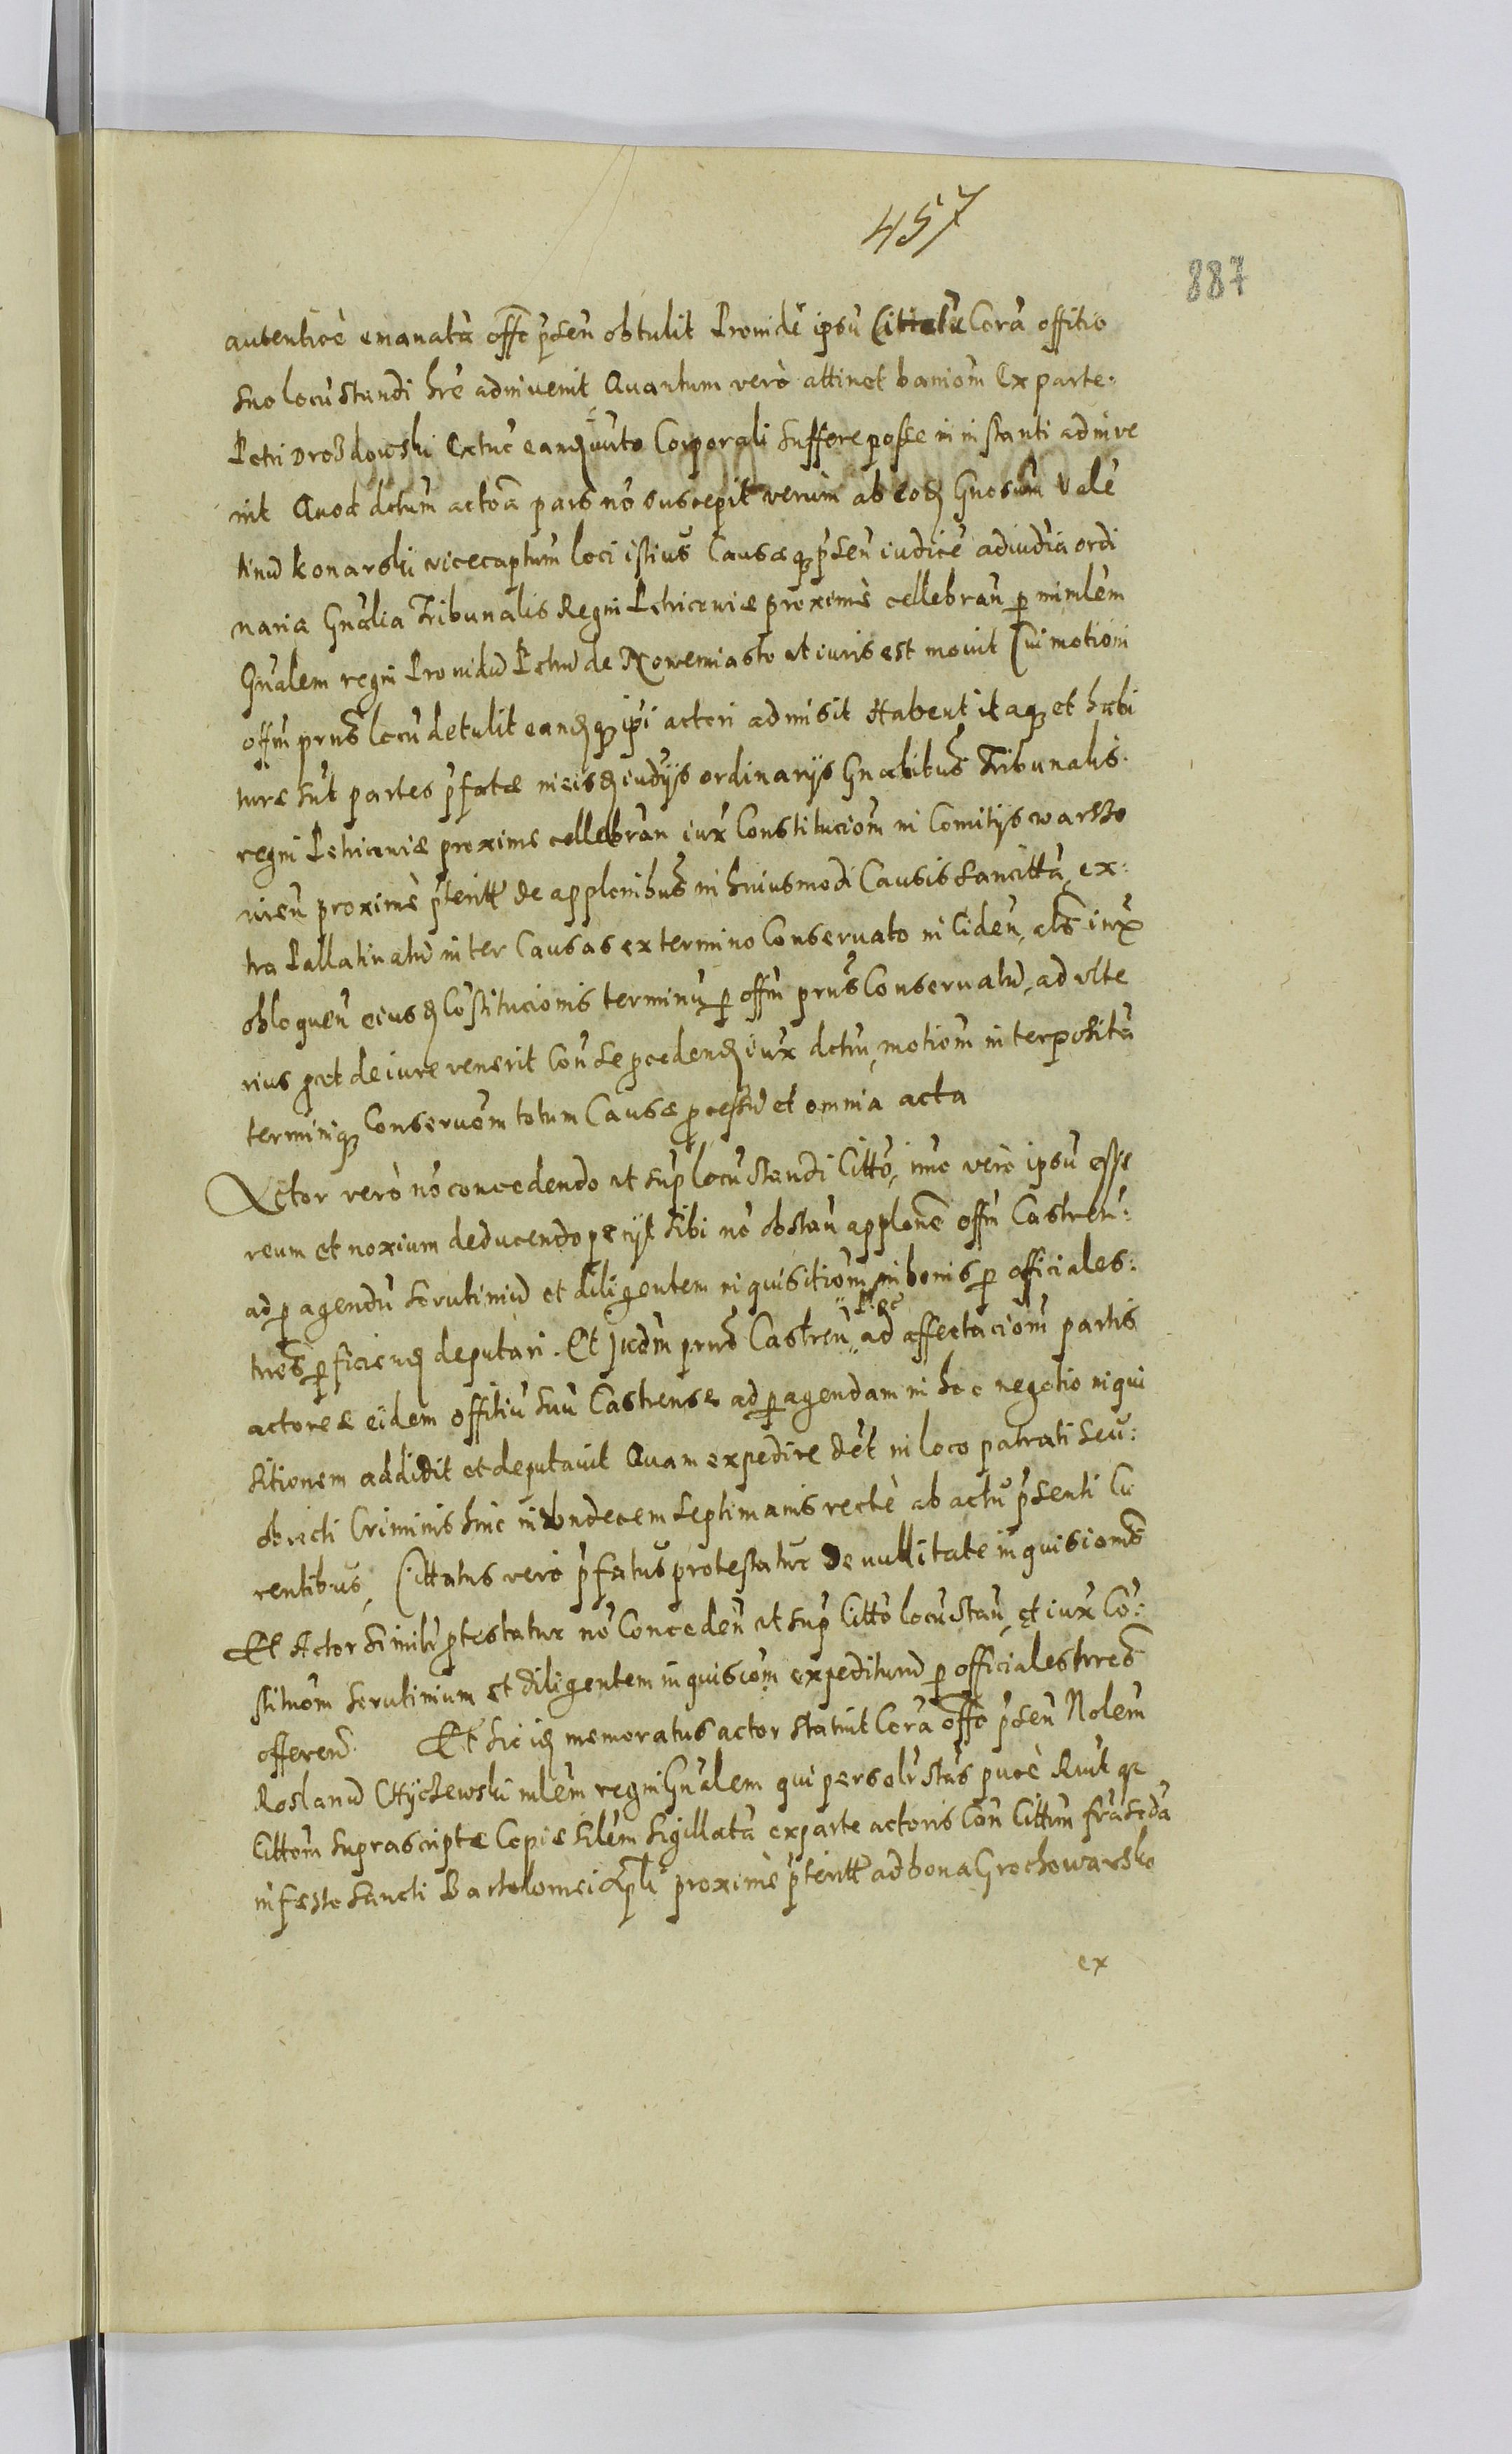 457
887
autenticè emanatà offo pńseń obtulit Prouidé ipsú Citatú Corá offitio
suo locú standi hré adinuenit Quantum verò attinet baniom ex parte:
Petri Drozdowski extuc eandem iurto Corporali suffere posse in instanti adinve
nit Quod dctum actoa pars nó suscepit verùm ab eodem Gnosum Valé
tinú Konarski vicecaptum loci istius Causæq pńseń iudicé ad iudia ordi
naria Gnalia Tribunalis Regni Petricouiæ proximè cellebrań p minlem
Gnalem regni Prouidú Petrú de Nowemiasto ut iuris est mouit Cui motioni
offm prns locú detulit eandemq ipi actori admisit Habent itaq et habi
turæ sút partes pfatæ in eisdem iudijs ordinarijs Gnalibus Tribunalis
regni Petricouiæ proxime cellebrań iux Constituciom in Comitijs warszo
uień proximè pteritt de applonibus in huiusmodi Causis sancittá ex:
tra Pallatinatú inter Causas ex termino Conseruato inciden, als iux
obloquen eiusdem Costitucionis terminú p offm prns Conseruatú, ad vlte
rius prot de iure venerit Con se procedendem iux dctú, motiom interpositá
terminiq Conseruom totum Causæ processú et omnia acta
Actor verò nó concedendo ut sup locú standi Citto, imo verò ipsú esse
reum et noxium deducendo petijt sibi nó obstan applone offm Castren:
ad peragendú scrutiniú et diligentem inquisitiom in bonis p officiales:
tres pficiendem deputari. Et Judm prns Castreń ad affectaciom partis
actoreæ eidem offitiú suú Castrense ad peragendam in hoc negotio inqui
sitionem addidit et deputauit Quam expedire det in loco patrati seu:
obiecti Criminis hinc in vndecem septimanis rectè ab actu pńsenti Cu
rentibus, Cittatus verò pfatus protestatur de nullitate inquisioms
Et Actor similr protestatur nó Conceden ut sup Citto locú stan, et iux Có:
stituom scrutinium et diligentem inquisiom expediturú p officiales tres
offerend. Et sic idem memoratus actor statuit Corá offo pńseń Nolem
Roslanú Chyczewski mlem regni Gnalem qui personlr stas pucè Rcuit qz
Cittom suprascriptæ Copiæ silem sigillatá ex parte actoris Con Cittum fra scda
in festo Sancti Bartolomei Apli proximè pteritt ad bona Grochowarsko
ex